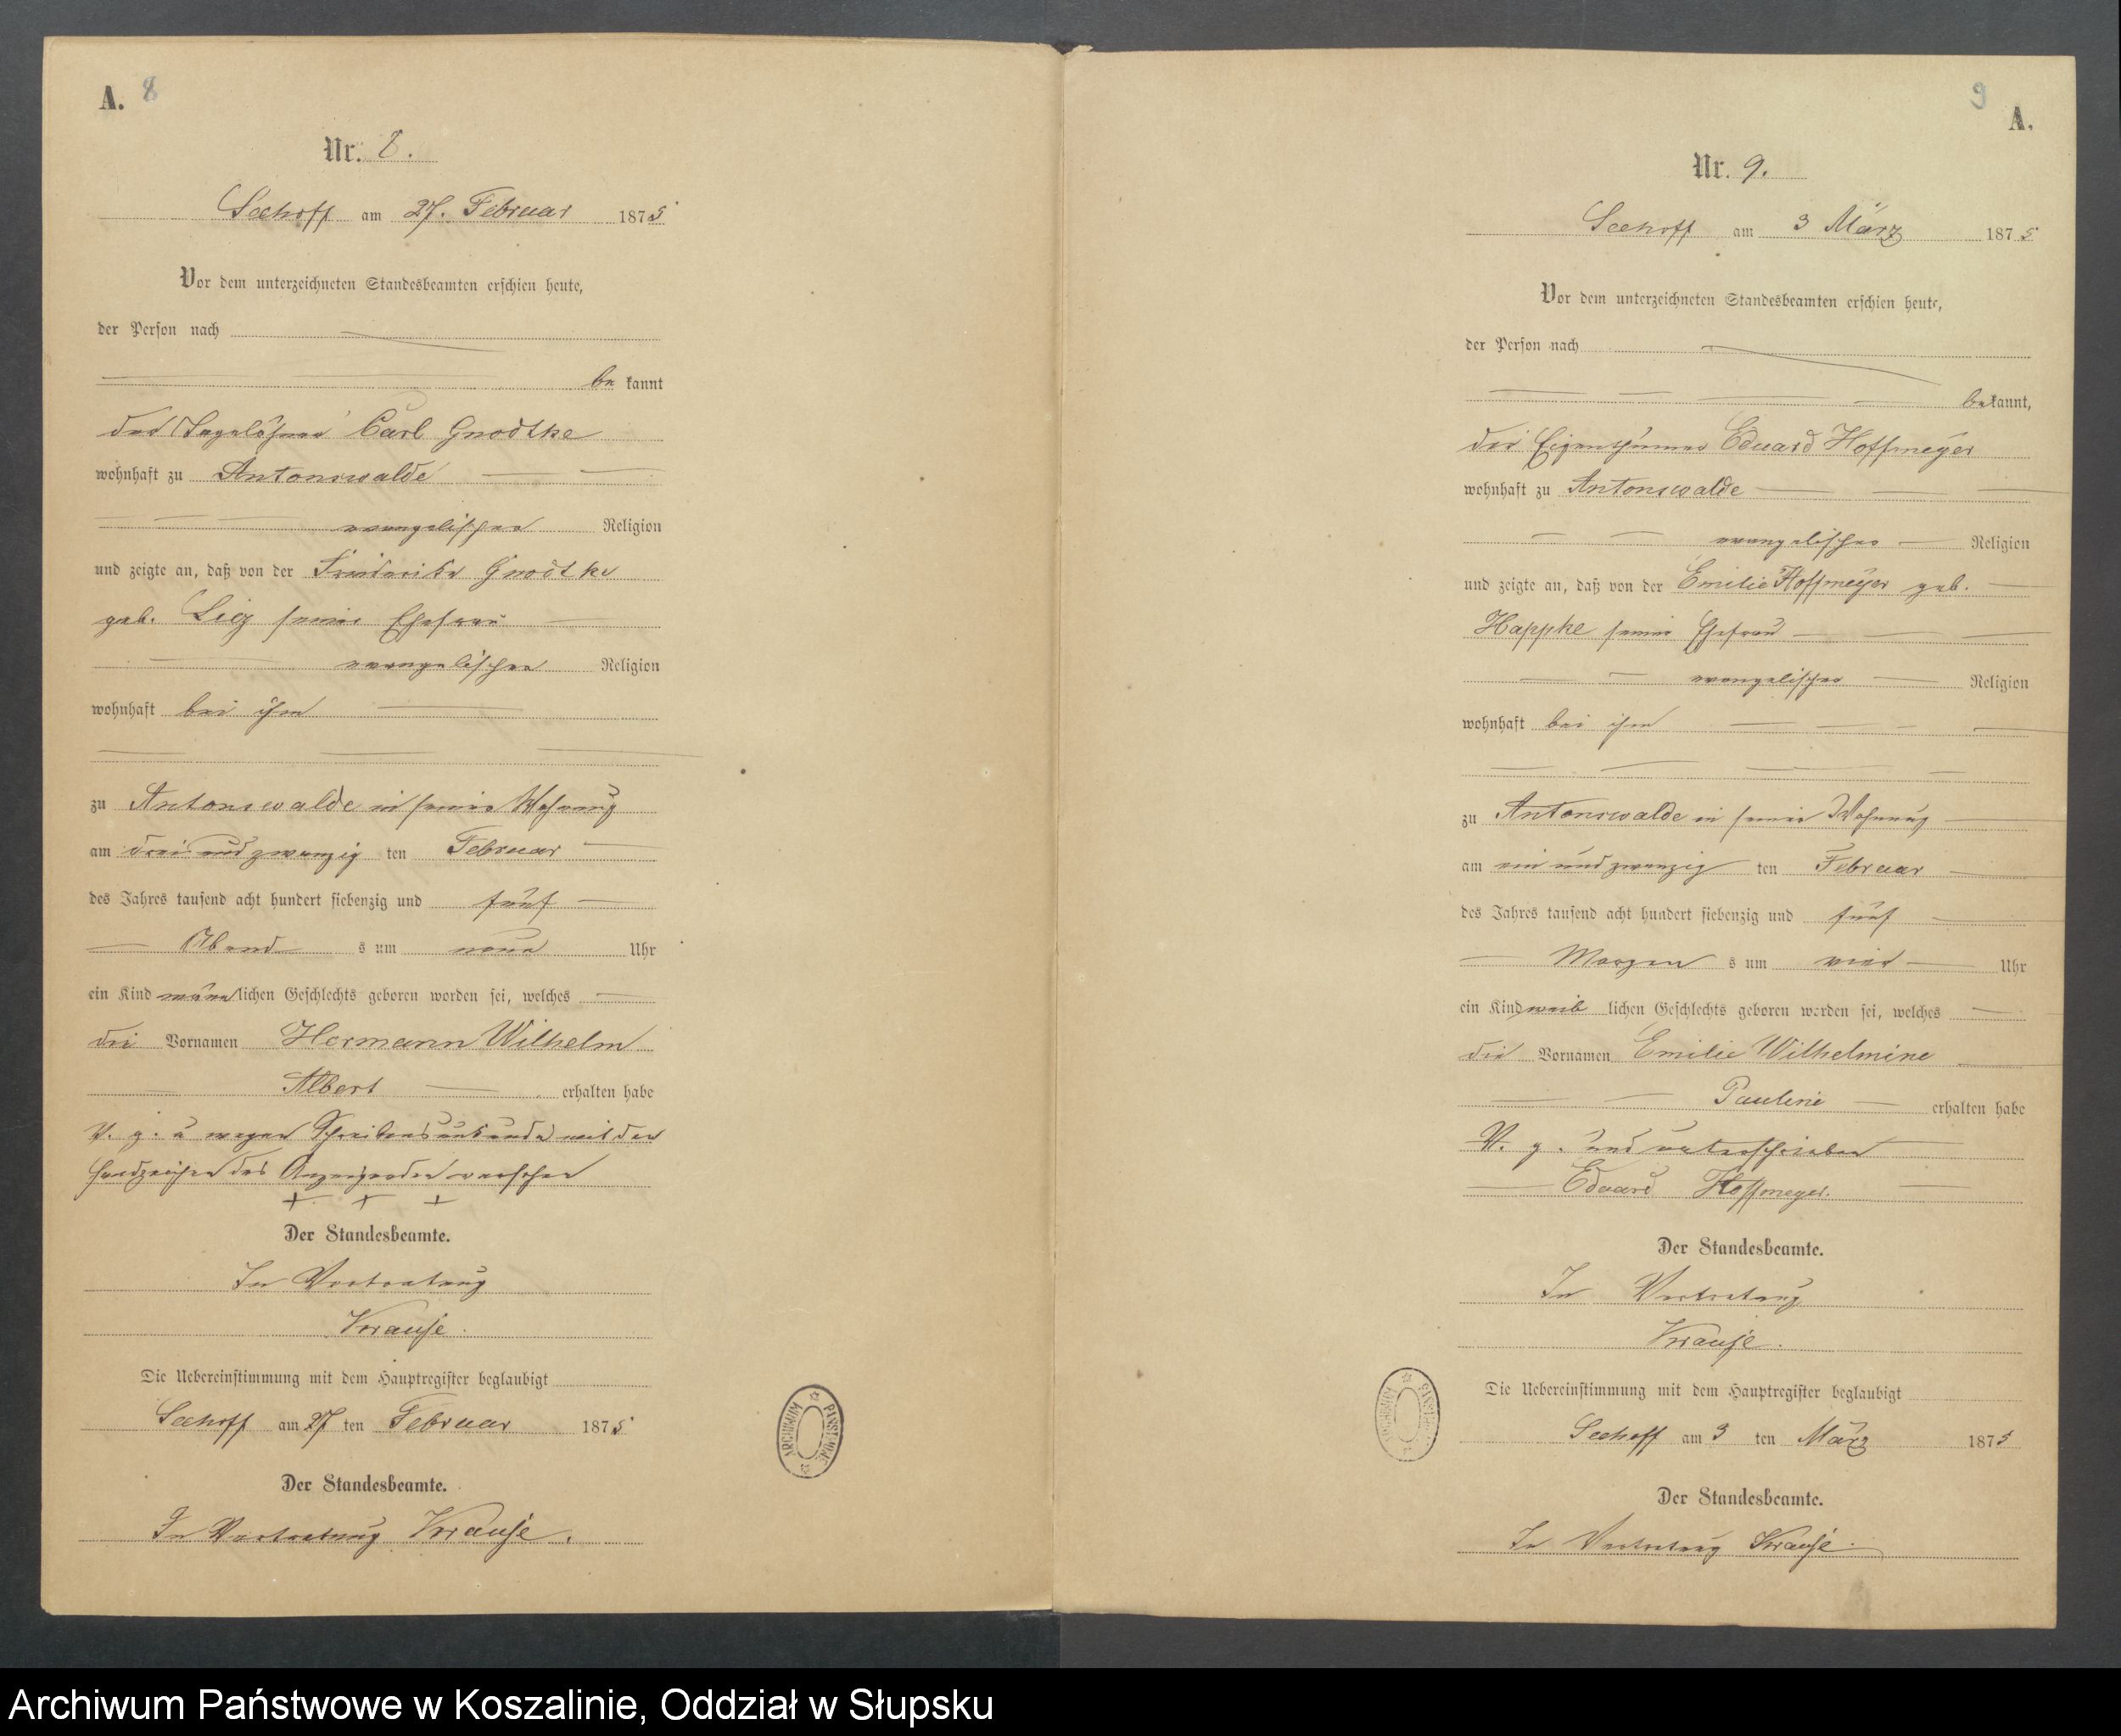 A. 8
Nr. 8.
Seehoff am 27. Februar 1875
Vor dem unterzeichneten Standesbeamten erschien heute,
der Person nach
be kannt
der Tagelöhner Carl Gnodtke
wohnhaft zu Antonswalde
evangelischer Religion
und zeigte an, daß von der Friederike Gnodtke
geb. Lig seiner Ehefrau
evangelischer Religion
wohnhaft bei ihm
zu Antonswalde in seiner Wohnung
am drei und zwanzig ten Februar
des Jahres tausend acht hundert siebenzig und fünf
Abend s um neun Uhr
ein Kind männlichen Geschlechts geboren worden sei, welches
die Vornamen Hermann Wilhelm
Albert erhalten habe
V. g. u wegen Schreibensunkunde mit den
Handzeichen des Anzeigenden versehen
+ + +
Der Standesbeamte.
In Vertretung
Krause.
Die Uebereinstimmung mit dem Hauptregister beglaubigt
Seehoff am 27 ten Februar 1875
Der Standesbeamte.
In Vertretung Krause.
ARCHIWUM PAŃSTWOWE
9
A.
Nr. 9.
Seehoff am 3 März 1875
Vor dem unterzeichneten Standesbeamten erschien heute,
der Person nach
bekannt,
der Eigenthümer Eduard Hoffmeyer
wohnhaft zu Antonswalde
evangelischer Religion
und zeigte an, daß von der Emilie Hoffmeyer geb.
Happke seiner Ehefrau
evangelischer Religion
wohnhaft bei ihm
zu Antonswalde in seiner Wohnung
am ein und zwanzig ten Februar
des Jahres tausend acht hundert siebenzig und fünf
Morgen s um vier Uhr
ein Kind weib lichen Geschlechts geboren worden sei, welches
die Vornamen Emilie Wilhelmine
Pauline erhalten habe
V. g. und unterschrieben
Eduard Hoffmeyer.
Der Standesbeamte.
In Vertretung
Krause.
Die Uebereinstimmung mit dem Hauptregister beglaubigt
Seehoff am 3 ten März 1875
Der Standesbeamte.
In Vertretung Krause.
Archiwum Państwowe w Koszalinie, Oddział w Słupsku